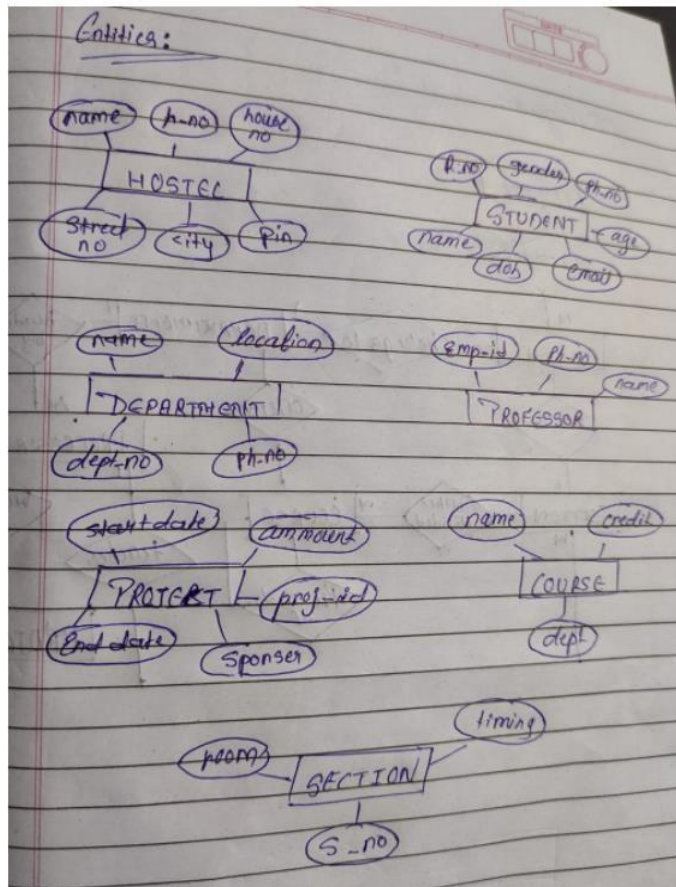 Entities:
name h-no house no
HOSTEL
street no city pin
R.no gender ph.no
STUDENT
name dob email age
name location
DEPARTMENT
dept-no ph-no
Emp-id Ph-no name
PROFESSOR
start date ammount
PROJECT proj-id
End date sponser
name credit
COURSE
dept
timing
room
SECTION
S_no